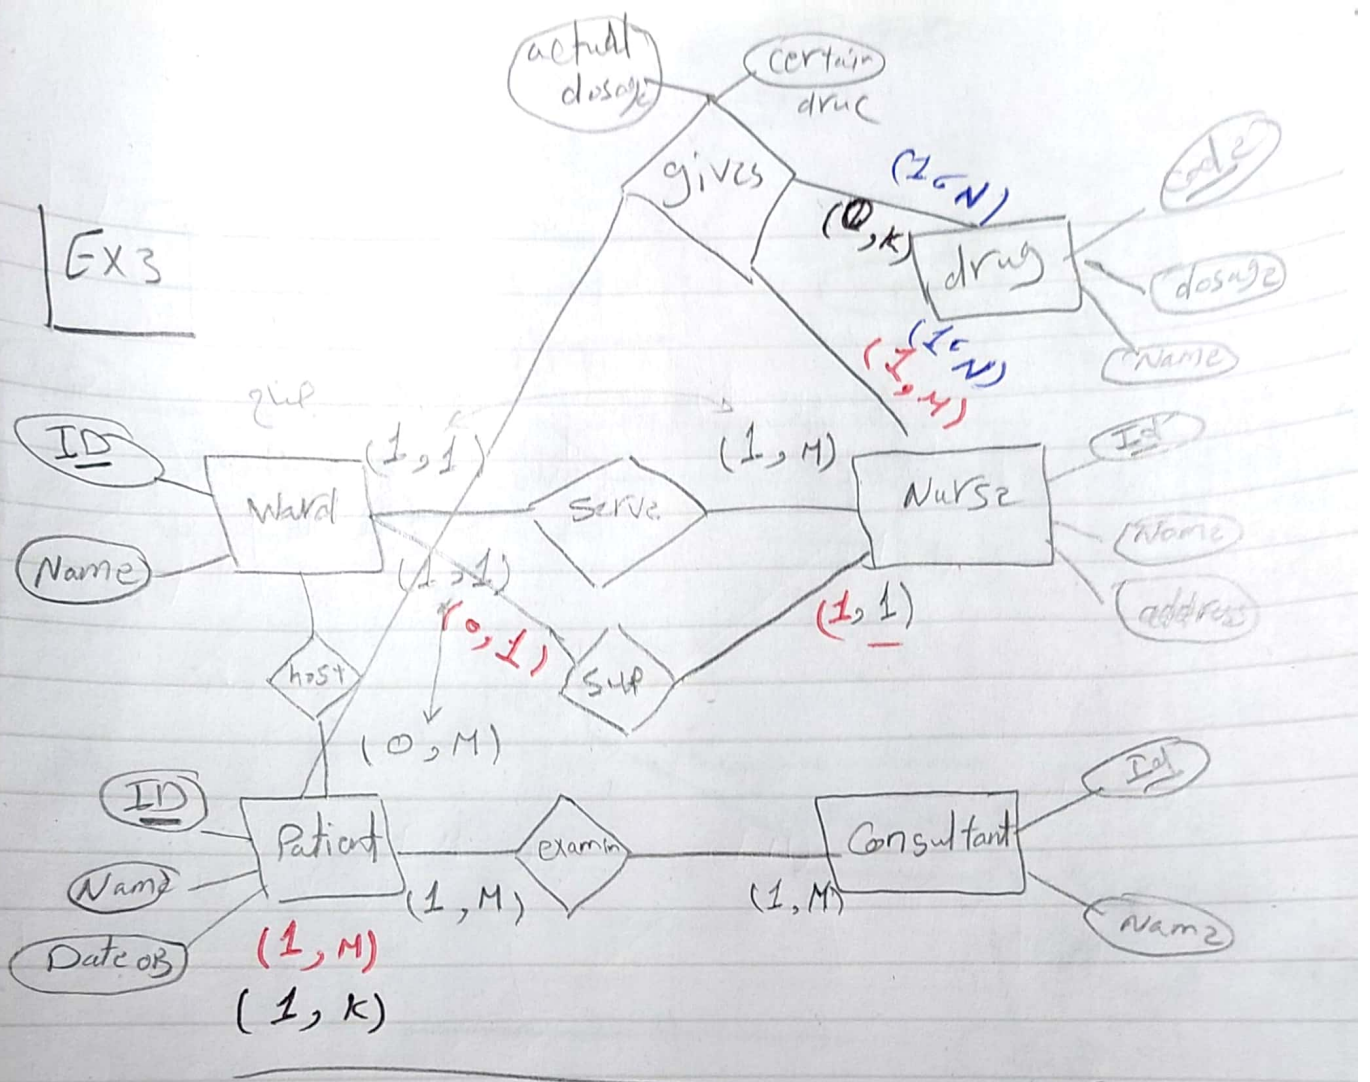 actual
dosage
certain
druc
gives
(1,N)
(0,K)
drug
Code
dosage
Name
EX3
(1,N)
(1,M)
ID
Ward
Name
(1,1)
Serve
(1,M)
Nurse
Id
Name
address
(1,1)
(0,1)
(1,1)
host
Sup
(0,M)
ID
Patient
Name
Date OB
(1,M)
examin
(1,M)
Consultant
Id
Name
(1,M)
(1,K)